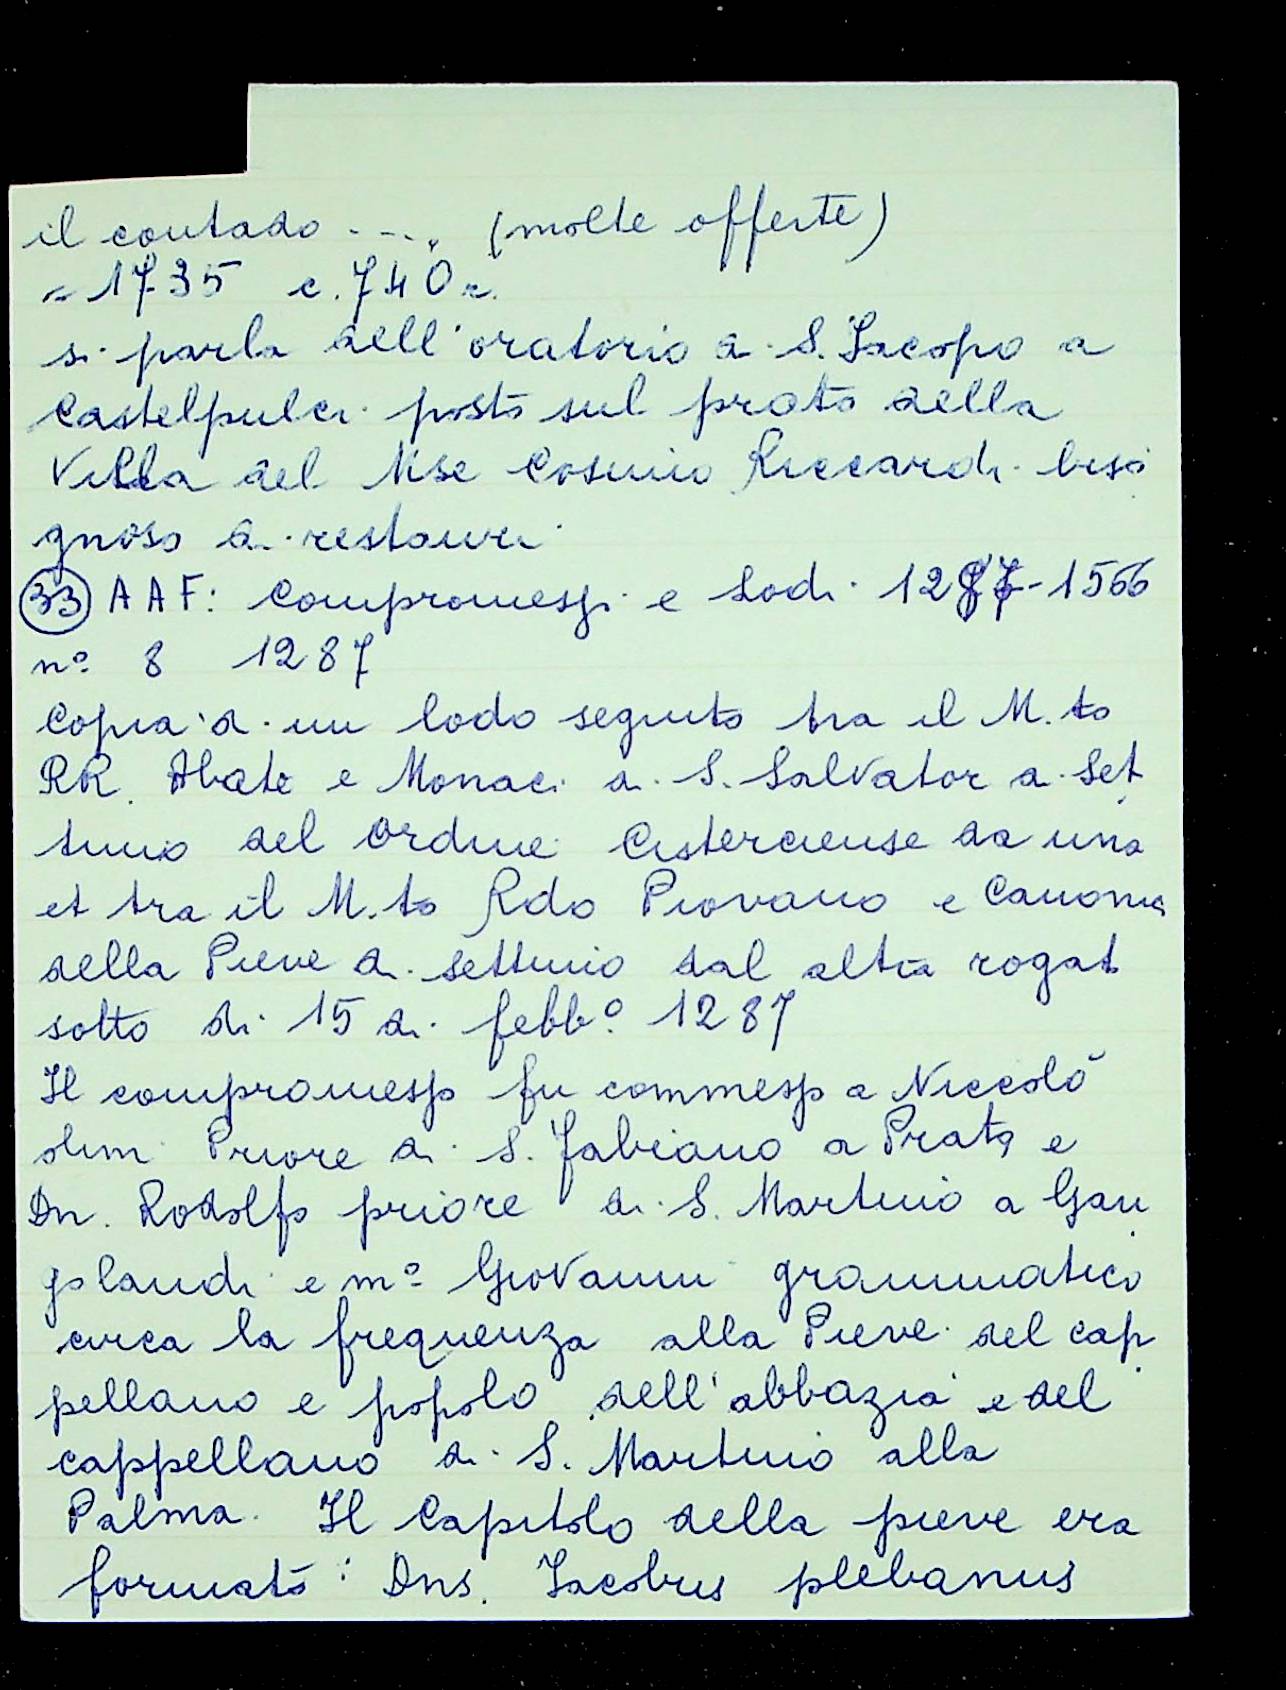 il contado .... (molte offerte)
= 1735 c. 740 r.
si parla dell'oratorio di S. Jacopo a
Castelpulci posto sul prato della
Villa del Mse Cosimo Riccardi biso
gnoso di restauri
(33) AAF: Compromessi e Lodi 1287-1566
n° 8 1287
Copia di un lodo seguito tra il M.to
RR. Abate e Monaci di S. Salvator a Set
timo del Ordine Cisterciense da una
et tra il M.to Rdo Piovano e Canonici
della Pieve di Settimo dal altra rogat
sotto di 15 di febb° 1287
Il compromesso fu commesso a Niccolò
olim Priore di S. Fabiano a Prato e
Dn. Rodolfo priore di S. Martino a Gan
golandi e m° Giovanni grammatico
circa la frequenza alla Pieve del cap
pellano e popolo dell'abbazia e del
cappellano di S. Martino alla
Palma. Il Capitolo della pieve era
formato: Dns. Jacobus plebanus